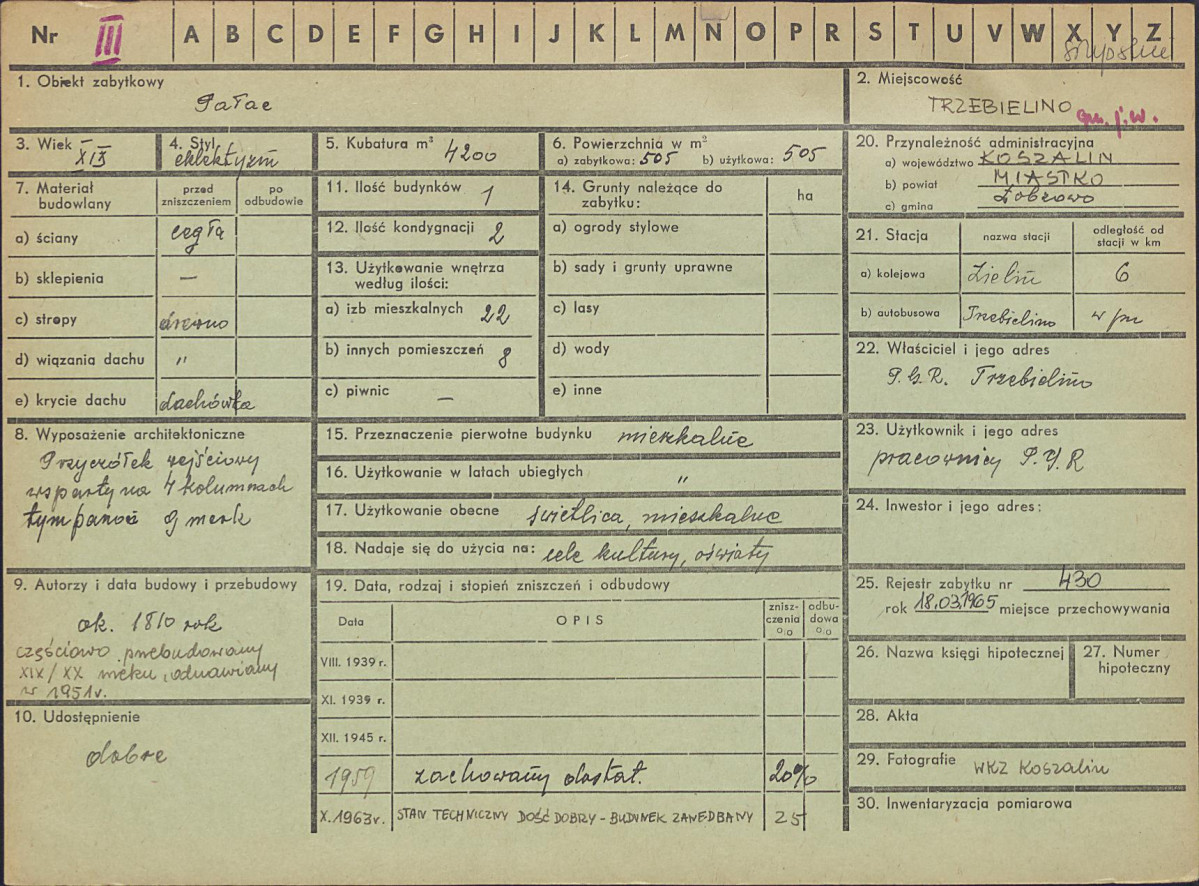 Nr III A B C D E F G H I J K L M N O P R S T U V W X Y Z
1. Obiekt zabytkowy
Pałac
2. Miejscowość
TRZEBIELINO
gm. j.w.
3. Wiek XIX
4. Styl eklektyzm
5. Kubatura m³ 4200
6. Powierzchnia w m²
a) zabytkowa: 505 b) użytkowa: 505
7. Materiał budowlany
przed zniszczeniem
po odbudowie
a) ściany cegła
b) sklepienia —
c) stropy drewno
d) wiązania dachu "
e) krycie dachu dachówka
8. Wyposażenie architektoniczne
Przyczółek wejściowy
wsparty na 4 kolumnach
9. Autorzy i data budowy i przebudowy
ok. 1810 rok
częściowo przebudowany
XIX/XX wieku, odnawiany
w 1951r.
10. Udostępnienie
dobre
11. Ilość budynków 1
12. Ilość kondygnacji 2
13. Użytkowanie wnętrza
według ilości:
a) izb mieszkalnych 22
b) innych pomieszczeń 8
c) piwnic —
14. Grunty należące do
zabytku:
ha
a) ogrody stylowe
b) sady i grunty uprawne
c) lasy
d) wody
e) inne
15. Przeznaczenie pierwotne budynku mieszkalne
16. Użytkowanie w latach ubiegłych "
17. Użytkowanie obecne świetlica, mieszkalne
18. Nadaje się do użycia na: cele kultury, oświaty
19. Data, rodzaj i stopień zniszczeń i odbudowy
Data
OPIS
znisz-
czenia
%
odbu-
dowa
%
VIII. 1939 r.
XI. 1939 r.
XII. 1945 r.
1959 zachowany dostat. 20%
X. 1963 r. STAN TECHNICZNY DOŚĆ DOBRY - BUDYNEK ZANIEDBANY 25
20. Przynależność administracyjna
a) województwo KOSZALIN
b) powiat MIASTKO
c) gmina
21. Stacja
nazwa stacji
odległość od
stacji w km
a) kolejowa Zielin 6
b) autobusowa Trzebielino
22. Właściciel i jego adres
P.G.R. Trzebielino
23. Użytkownik i jego adres
pracownicy P.G.R
24. Inwestor i jego adres:
25. Rejestr zabytku nr 430
rok 18.03.1965 miejsce przechowywania
26. Nazwa księgi hipotecznej
27. Numer
hipoteczny
28. Akta
29. Fotografie WKZ Koszalin
30. Inwentaryzacja pomiarowa